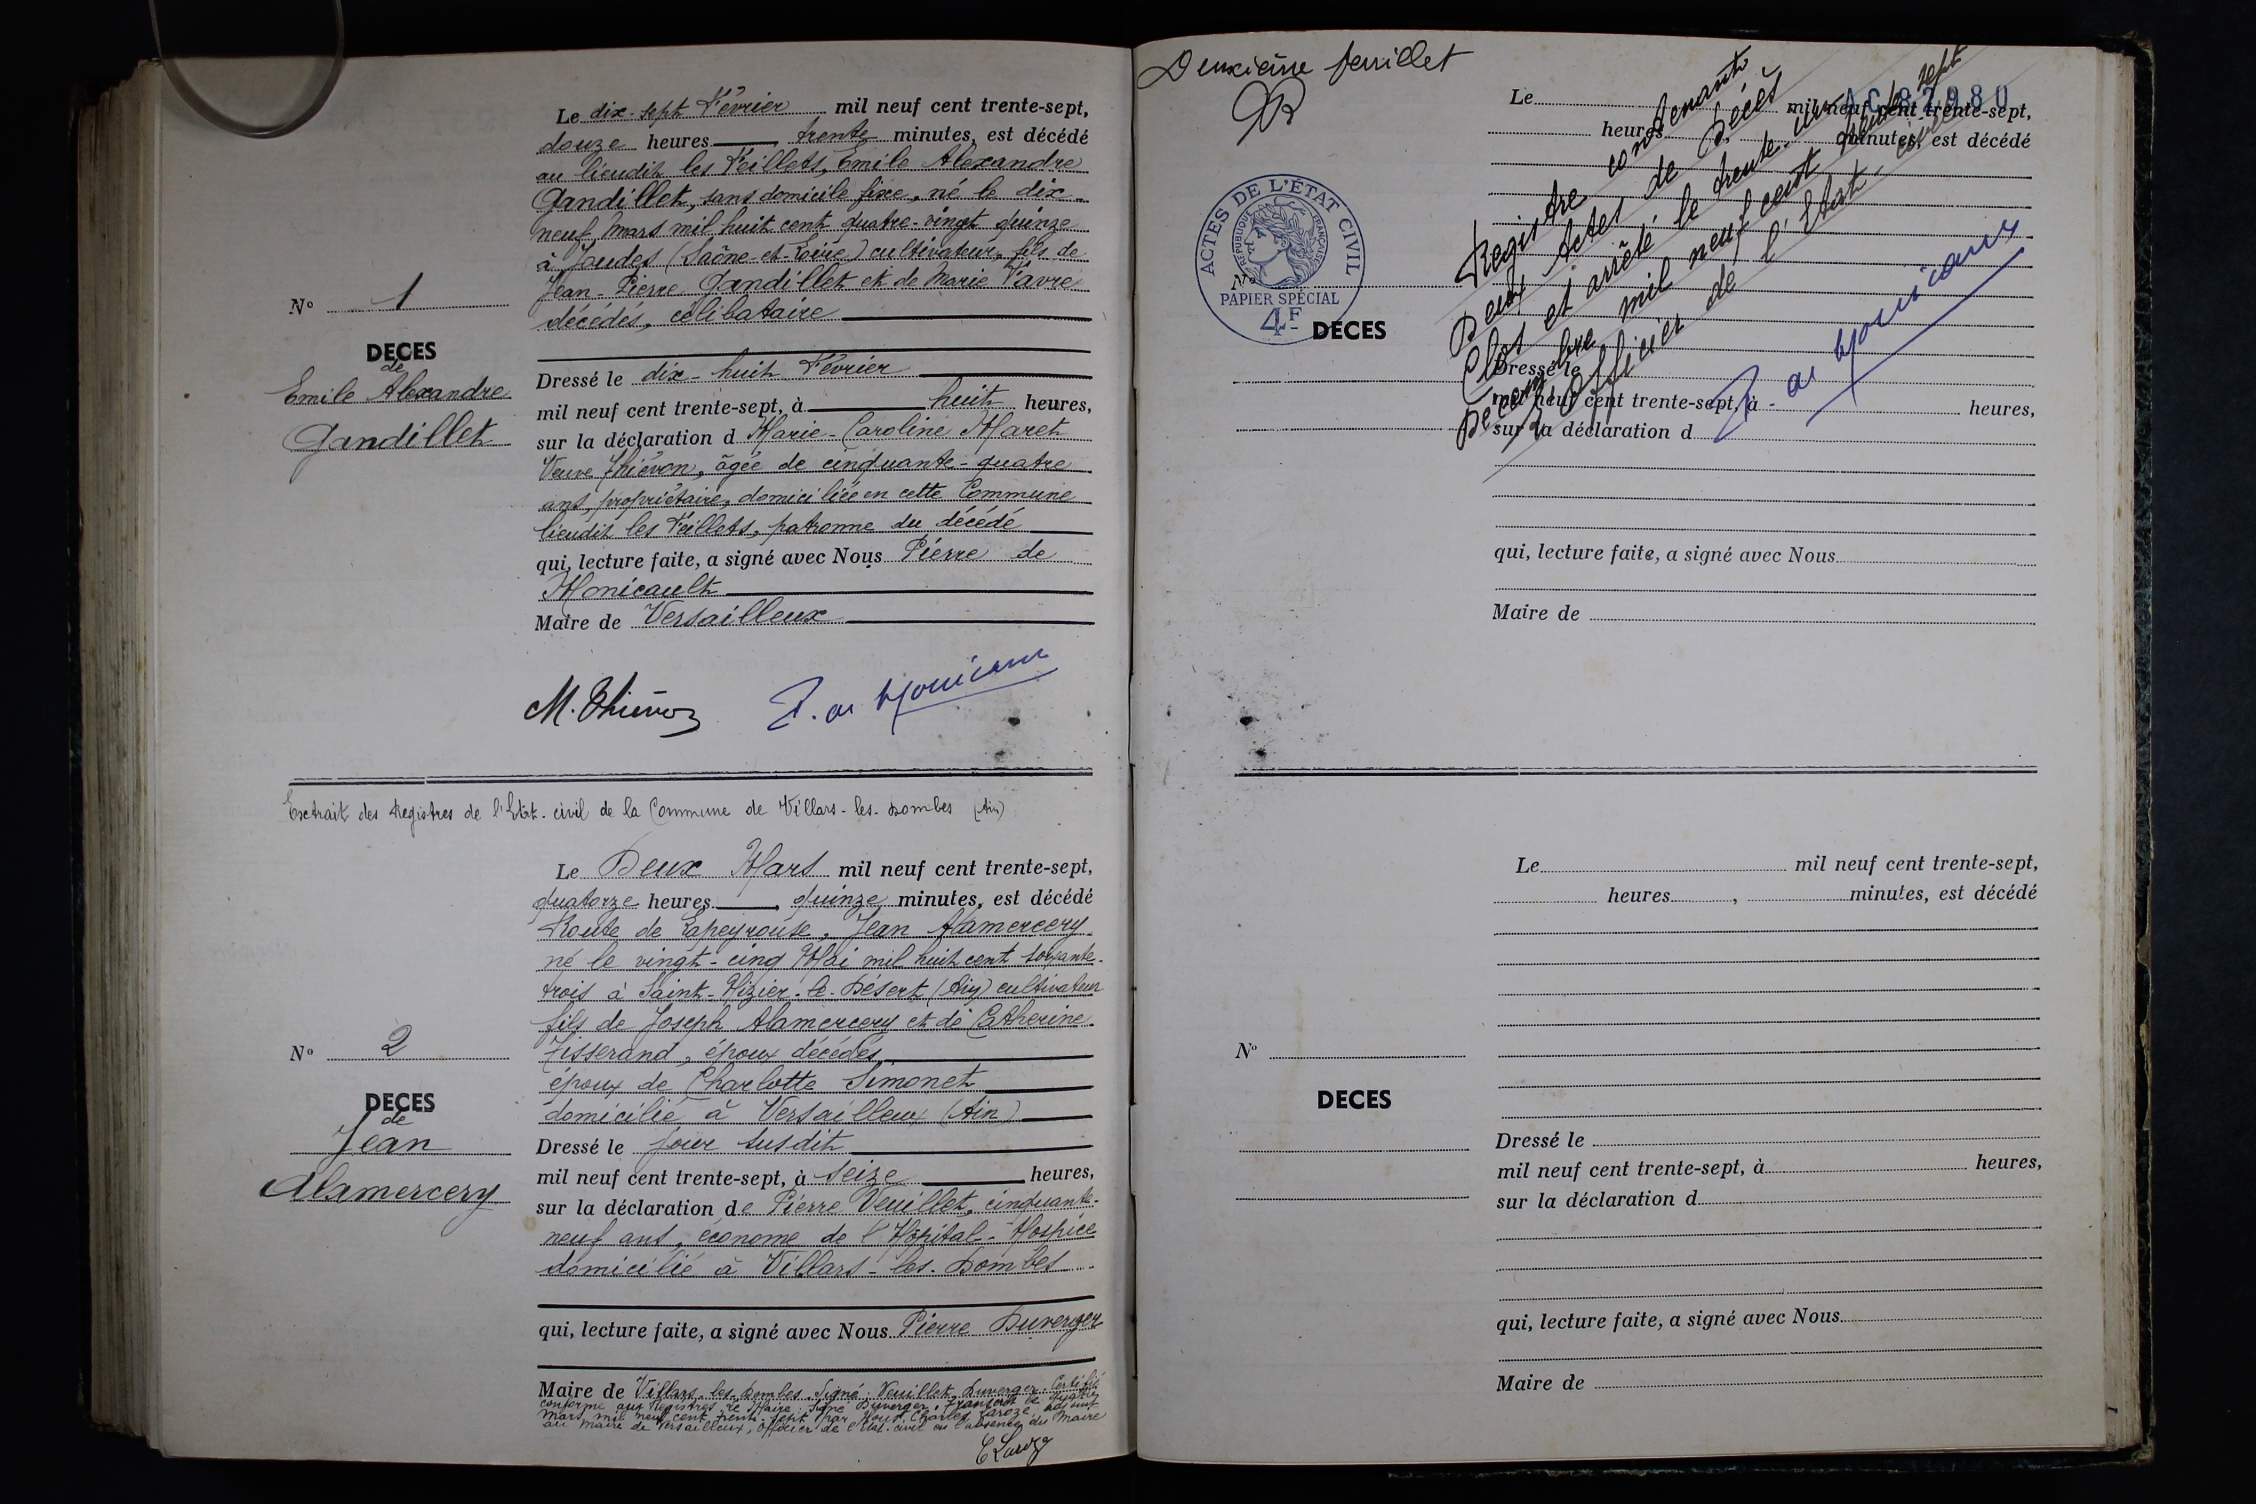 Le dix-sept Février mil neuf cent trente-sept,
douze heures, trente minutes, est décédé
au lieudit les Feillets, Emile Alexandre
Gandillet, sans domicile fixe, né le dix-
neuf Mars mil huit cent quatre-vingt quinze
à Joudes (Saône-et-Loire) cultivateur, fils de
Jean-Pierre Gandillet et de Marie Favre
décédés, célibataire
No 1
DECES
de
Emile Alexandre
Gandillet
Dressé le dix-huit Février
mil neuf cent trente-sept, à huit heures,
sur la déclaration d Marie-Caroline Maret
Veuve Thiévon, âgée de cinquante-quatre
ans, propriétaire, domiciliée en cette Commune
lieudit les Feillets, patronne du décédé
qui, lecture faite, a signé avec Nous Pierre de
Monicault
Maire de Versailleux
M. Thiévon P. de Monicault
Extrait des Registres de l'Etat-civil de la Commune de Villars-les-Dombes (Ain)
Le Deux Mars mil neuf cent trente-sept,
quatorze heures, quinze minutes, est décédé
Route de Lapeyrouse, Jean Alamercery
né le vingt-cinq Mai mil huit cent soixante-
trois à Saint-Nizier-le-Désert (Ain) cultivateur
fils de Joseph Alamercery et de Catherine
Tisserand, époux décédés,
époux de Charlotte Simonet
domicilié à Versailleux (Ain)
No 2
DECES
de
Jean
Alamercery
Dressé le jour susdit
mil neuf cent trente-sept, à seize heures,
sur la déclaration de Pierre Veuillet, cinquante-
neuf ans, économe de l'Hôpital-Hospice
domicilié à Villars-les-Dombes
qui, lecture faite, a signé avec Nous Pierre Duverger
Maire de Villars-les-Dombes. Signé: Veuillet, Duverger. Certifié
conforme aux Registres le Maire: Signé Duverger. Transcrit le quatre
Mars mil neuf cent trente-sept par Nous Charles Laroze, adjoint
au Maire de Versailleux, Officier de l'Etat-civil en l'absence du Maire
C Laroze
Deuxième feuillet
ACTES DE L'ÉTAT CIVIL
RÉPUBLIQUE FRANÇAISE
PAPIER SPÉCIAL
4F
AC 87980
Le mil neuf cent trente-sept,
heures, minutes, est décédé
Registre contenant
Deux Actes de Décès
Clos et arrêté le trente-un
Décembre mil neuf cent trente-sept
L'Officier de l'Etat-civil
P. de Monicault
No
DECES
Dressé le
mil neuf cent trente-sept, à heures,
sur la déclaration d
qui, lecture faite, a signé avec Nous
Maire de
Le mil neuf cent trente-sept,
heures, minutes, est décédé
No
DECES
Dressé le
mil neuf cent trente-sept, à heures,
sur la déclaration d
qui, lecture faite, a signé avec Nous
Maire de